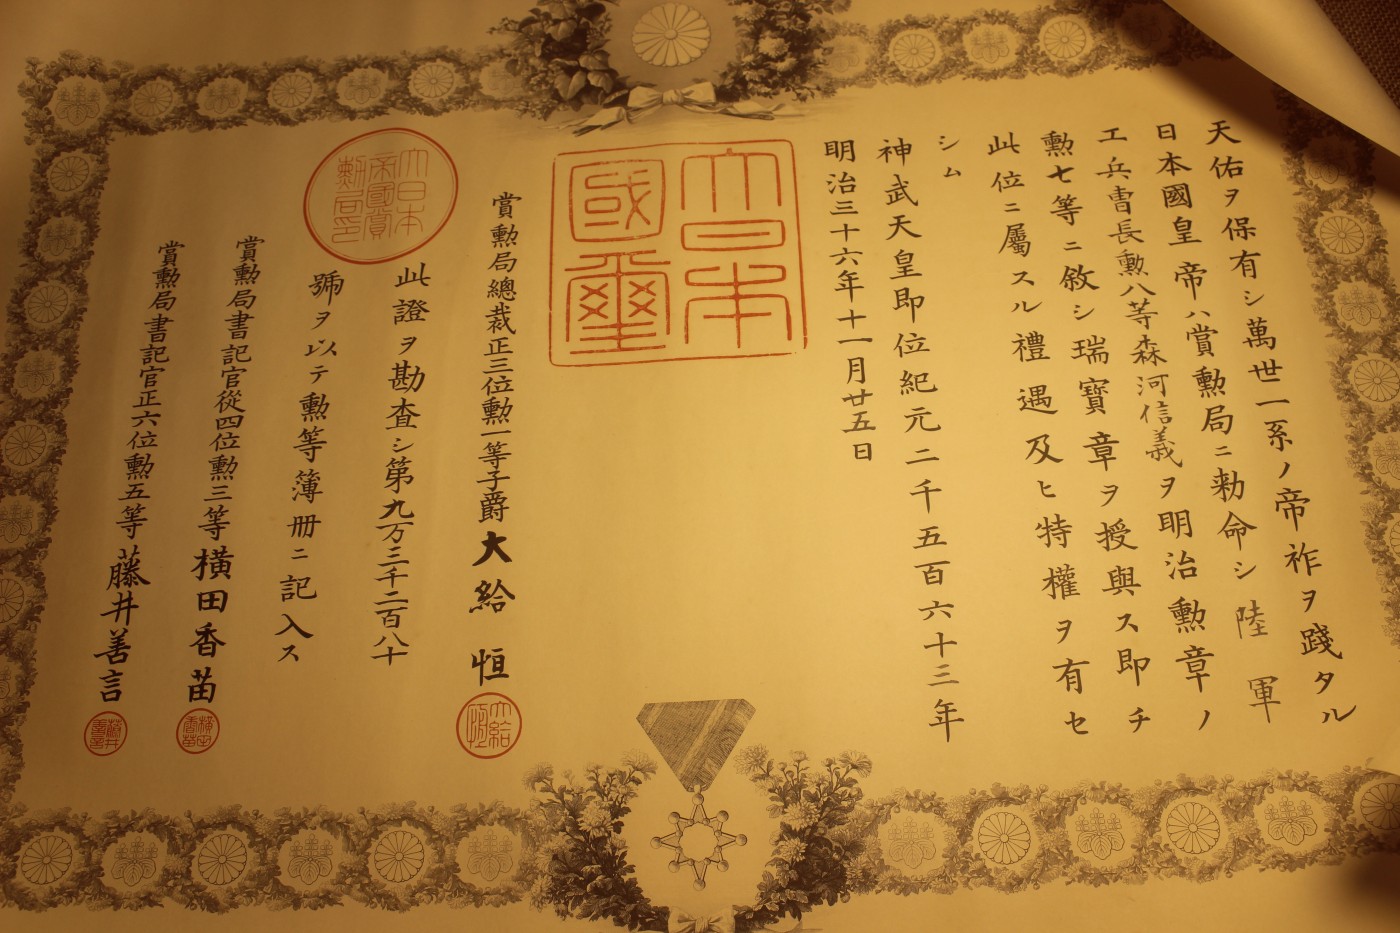 天佑ヲ保有シ萬世一系ノ帝祚ヲ踐タル
日本國皇帝ハ賞勲局ニ勅命シ陸軍
工兵曹長勲八等森河信義ヲ明治勲章ノ
勲七等ニ敘シ瑞寶章ヲ授與ス即チ
此位ニ屬スル禮遇及ヒ特權ヲ有セ
シム
神武天皇即位紀元二千五百六十三年
明治三十六年十一月廿五日
大日本
國璽
賞勲局總裁正三位勲一等子爵大給恒
大給
恒
此證ヲ勘査シ第九万三千二百八十
號ヲ以テ勲等簿冊ニ記入ス
大日本
帝國賞
勲局印
賞勲局書記官從四位勲三等横田香苗
横田
香苗
賞勲局書記官正六位勲五等藤井善言
藤井
善言